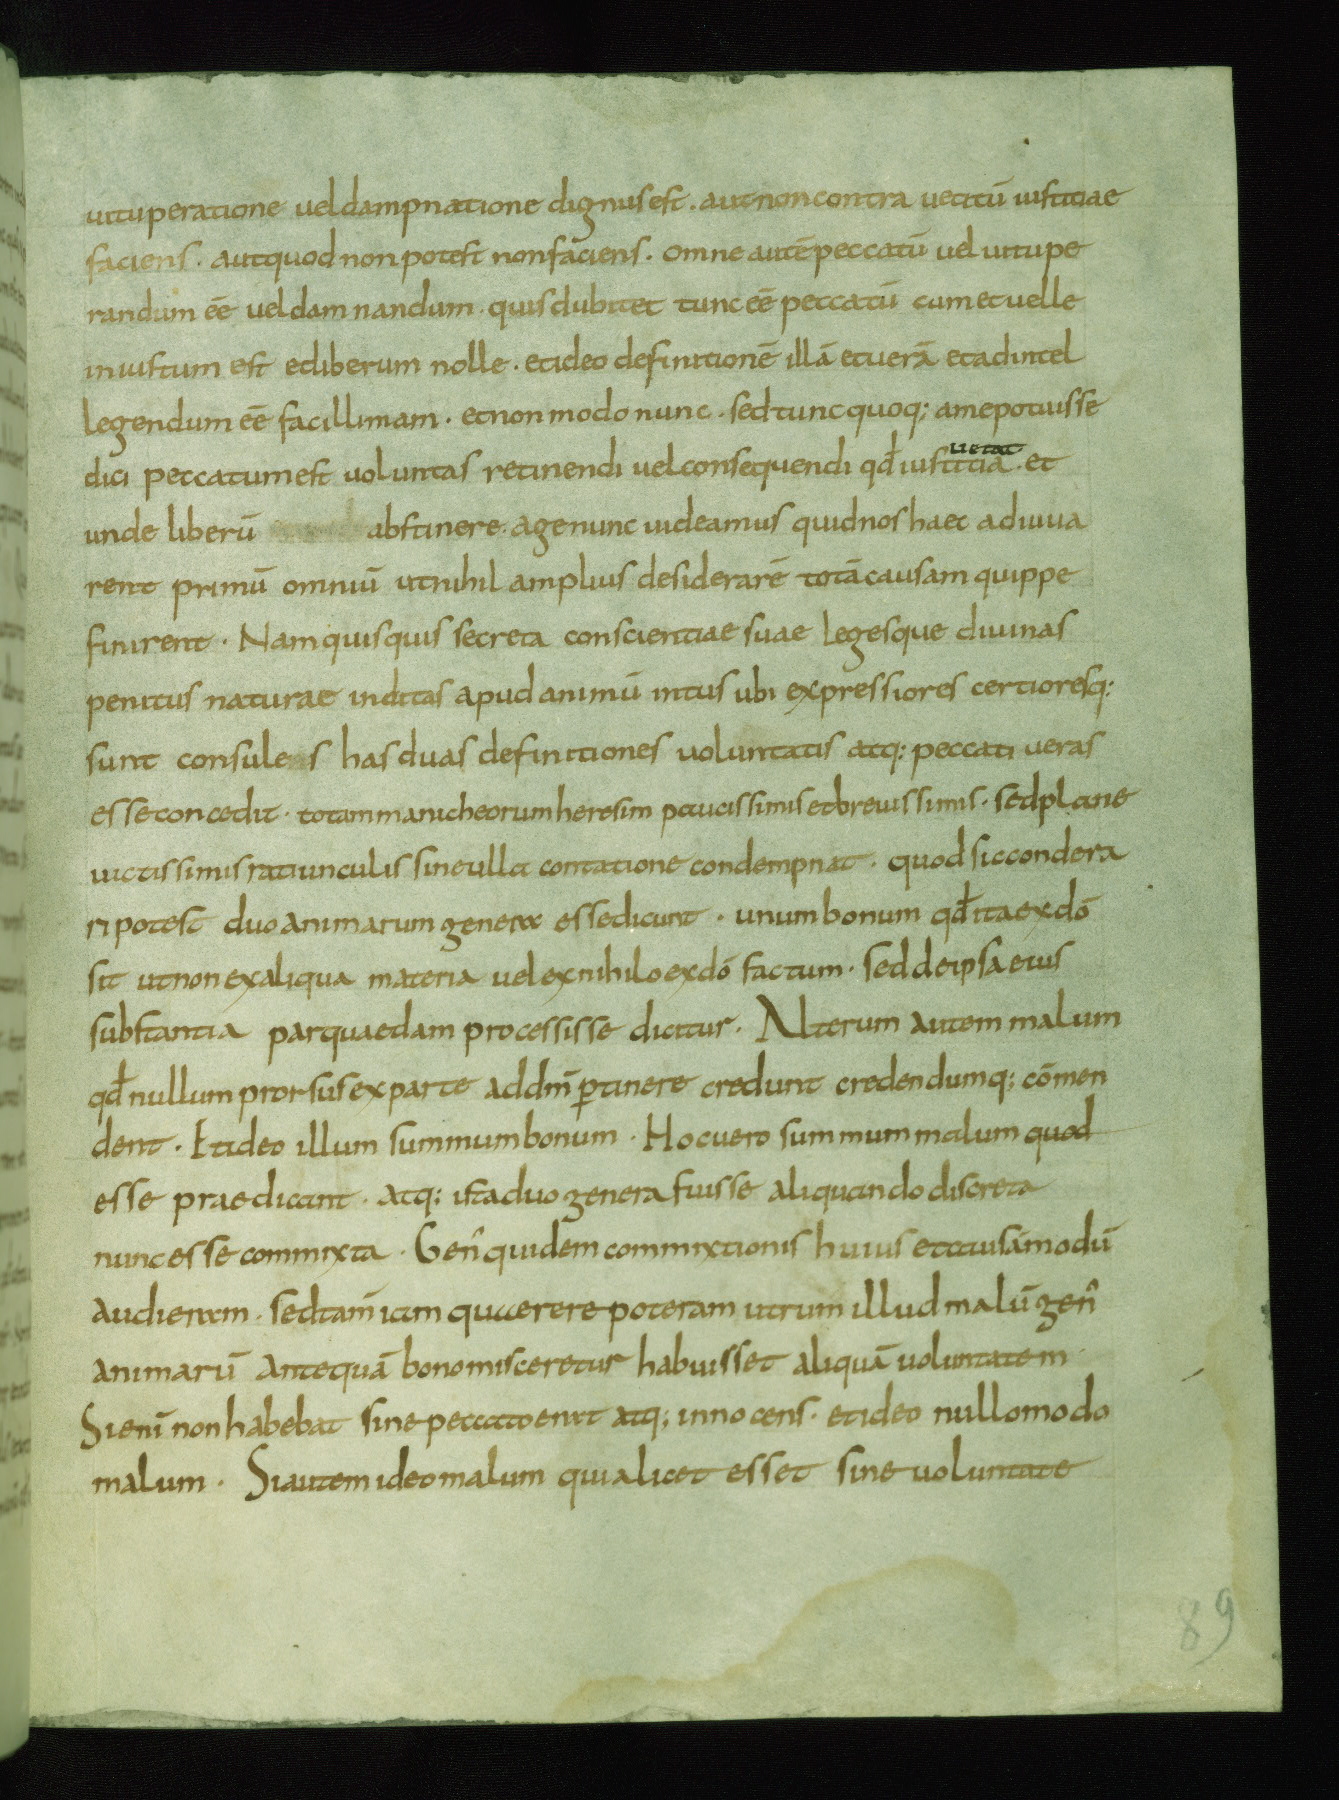 uituperatione uel dampnatione dignus est . aut non contra uetitū iustitiae
faciens . aut quod non potest non faciens . omne autē peccatū uel uitupe
randum eē uel damnandum . quis dubitet tunc eē peccatū cum et uelle
iniustum est et liberum nolle . et ideo definitionē illā et uerā et ad intel
legendum eē facillimam . et non modo nunc . sed tunc quoq; a me potuisse
dici peccatum est uoluntas retinendi uel consequendi qđ iustitia uetat . et
unde liberū abstinere . age nunc uideamus quid nos haec adiuua
rent primū omniū ut nihil amplius desiderarē totā causam quippe
finirent . Nam quisquis secreta conscientiae suae legesque diuinas
penitus naturae inditas apud animū intus ubi expressiores certioresq;
sunt consulens has duas definitiones uoluntatis atq; peccati ueras
esse concedit . totam manicheorum heresim paucissimis et breuissimis . sed plane
uictissimis ratiunculis sine ulla contatione condempnat . quod sic condera
ri potest duo animarum genera esse dicunt . unum bonum qđ ita ex dō
sit ut non ex aliqua materia uel ex nihilo ex dō factum . sed de ipsa eius
substantia pars quaedam processisse dicitur . Alterum autem malum
qđ nullum prorsus ex parte ad dm̄ ꝑtinere credunt credendumq; cōmen
dent . Et ideo illum summum bonum . Hoc uero summum malum quod
esse praedicant . atq; ista duo genera fuisse aliquando discreta
nunc esse commixta . Gen̄ quidem commixtionis huius et causā modū
audieram . sed tam̄ iam quaerere poteram utrum illud malū gen̄
animarū antequā bono misceretur habuisset aliquā uoluntatem
Si enī non habebat sine peccato erat atq; innocens . et ideo nullo modo
malum . Si autem ideo malum quia licet esset sine uoluntate
89